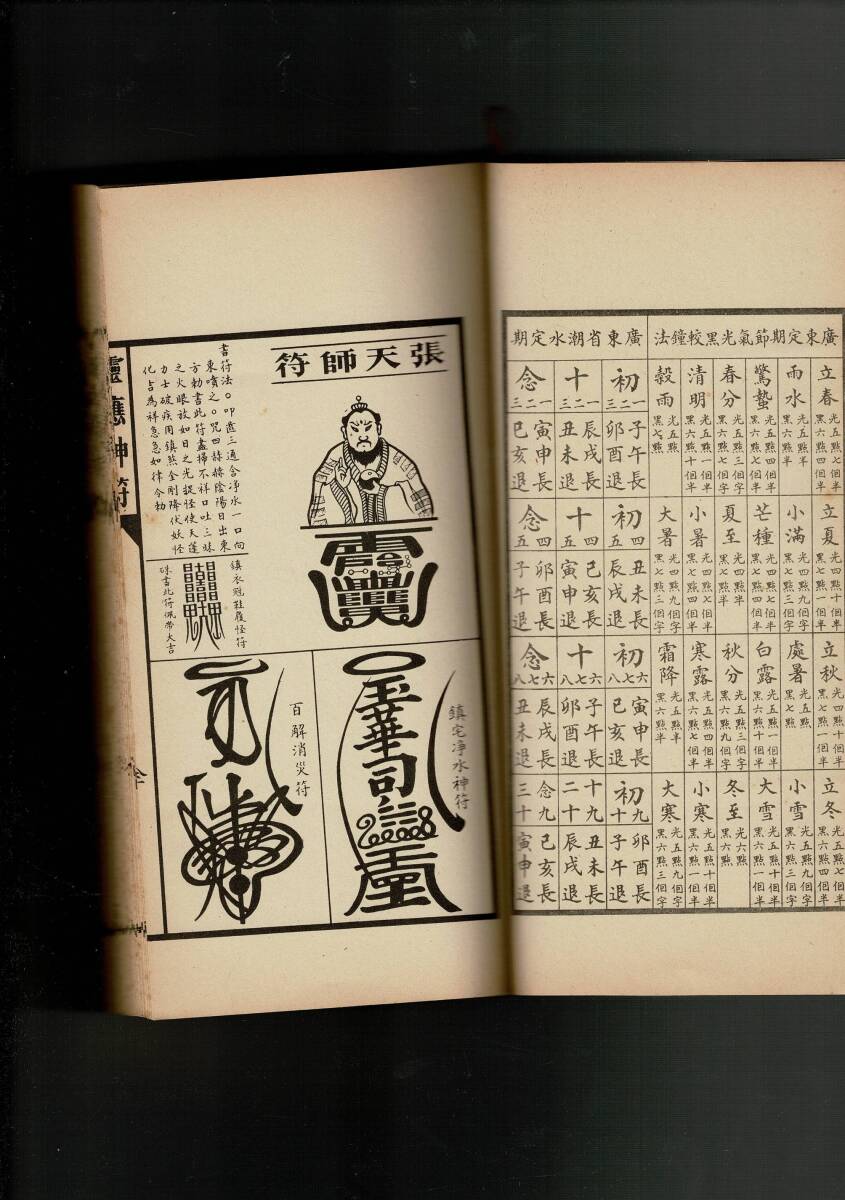 廣東定期節氣光黑較鐘法
立春 光五點七個半 黑六點四個半
雨水 光五點半 黑六點半
驚蟄 光五點四個半 黑六點七個半
春分 光五點三個字 黑六點九個字
清明 光五點一個半 黑六點十個半
穀雨 光五點 黑七點
立夏 光四點十個半 黑七點一個半
小滿 光四點九個字 黑七點三個字
芒種 光四點七個半 黑七點四個半
夏至 光四點半 黑七點半
小暑 光四點七個半 黑七點四個半
大暑 光四點九個字 黑七點三個字
立秋 光四點十個半 黑七點一個半
處暑 光五點 黑七點
白露 光五點一個半 黑六點十個半
秋分 光五點三個字 黑六點九個字
寒露 光五點四個半 黑六點七個半
霜降 光五點半 黑六點半
立冬 光五點七個半 黑六點四個半
小雪 光五點九個字 黑六點三個字
大雪 光五點十個半 黑六點一個半
冬至 光六點 黑六點
小寒 光五點十個半 黑六點一個半
大寒 光五點九個字 黑六點三個字
廣東省潮水定期
初一二三 子午長 卯酉退
十一二三 辰戌長 丑未退
念一二三 寅申長 巳亥退
初四五 丑未長 辰戌退
十四五 巳亥長 寅申退
念四五 卯酉長 子午退
初六七八 寅申長 巳亥退
十六七八 子午長 卯酉退
念六七八 辰戌長 丑未退
初九十 卯酉長 子午退
十九二十 丑未長 辰戌退
念九三十 巳亥長 寅申退
張天師符
書符法○叩齒三通含净水一口向
東噴之○咒曰赫赫陰陽日出東
方勅書此符盡掃不祥口吐三昧
之火眼放如日之光捉怪使天蓬
力士破疾用鎮煞金剛降伏妖怪
化吉為祥急急如律令勅
鎮衣冠鞋履怪符
硃書此符佩帶大吉
鎮宅净水神符
玉華司
百解消災符
靈應神符